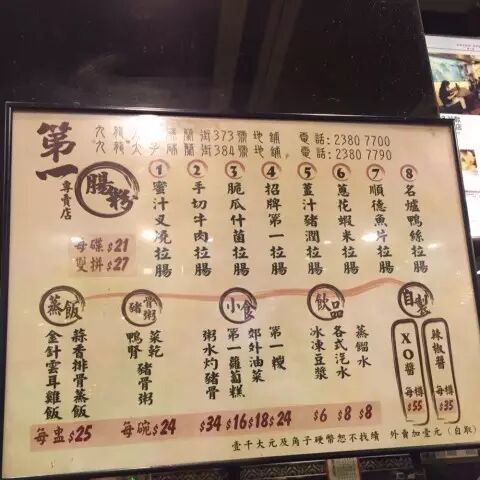 第一
腸粉
專賣店
街373號地鋪 電話:2380 7700
街384號地鋪 電話:2380 7790
每碟$21
雙拼$27
1 蜜汁叉燒拉腸
2 手切牛肉拉腸
3 脆瓜什菌拉腸
4 招牌第一拉腸
5 薑汁豬潤拉腸
6 蔥花蝦米拉腸
7 順德魚片拉腸
8 名爐鴨絲拉腸
蒸飯
蒜香排骨蒸飯
金針雲耳雞飯
每盅$25
豬骨粥
菜乾
鴨腎豬骨粥
每碗$24
小食
第一
郊外油菜
第一蘿蔔糕
粥水灼豬骨
$34 $16 $18 $24
飲品
蒸餾水
各式汽水
冰凍豆漿
$6 $8 $8
自製
辣椒醬
每樽
$35
XO醬
每樽
$55
壹千大元及角子硬幣恕不找續 外賣加壹元(自取)